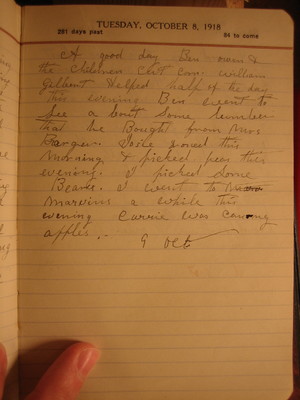 TUESDAY, OCTOBER 8, 1918
281 days past 84 to come
A good day Ben mam &
the Children Cut Corn. William
Gilbert Helped half of the day
this evening Ben went to
see a bout Some lumber
that he Bought from Mrs
Barger. Voise sowed this
Morning & picked peas this
evening. I picked Some
Beans. I went to
Marvins a while this
evening Carrie was caning
apples.-
9 Oct